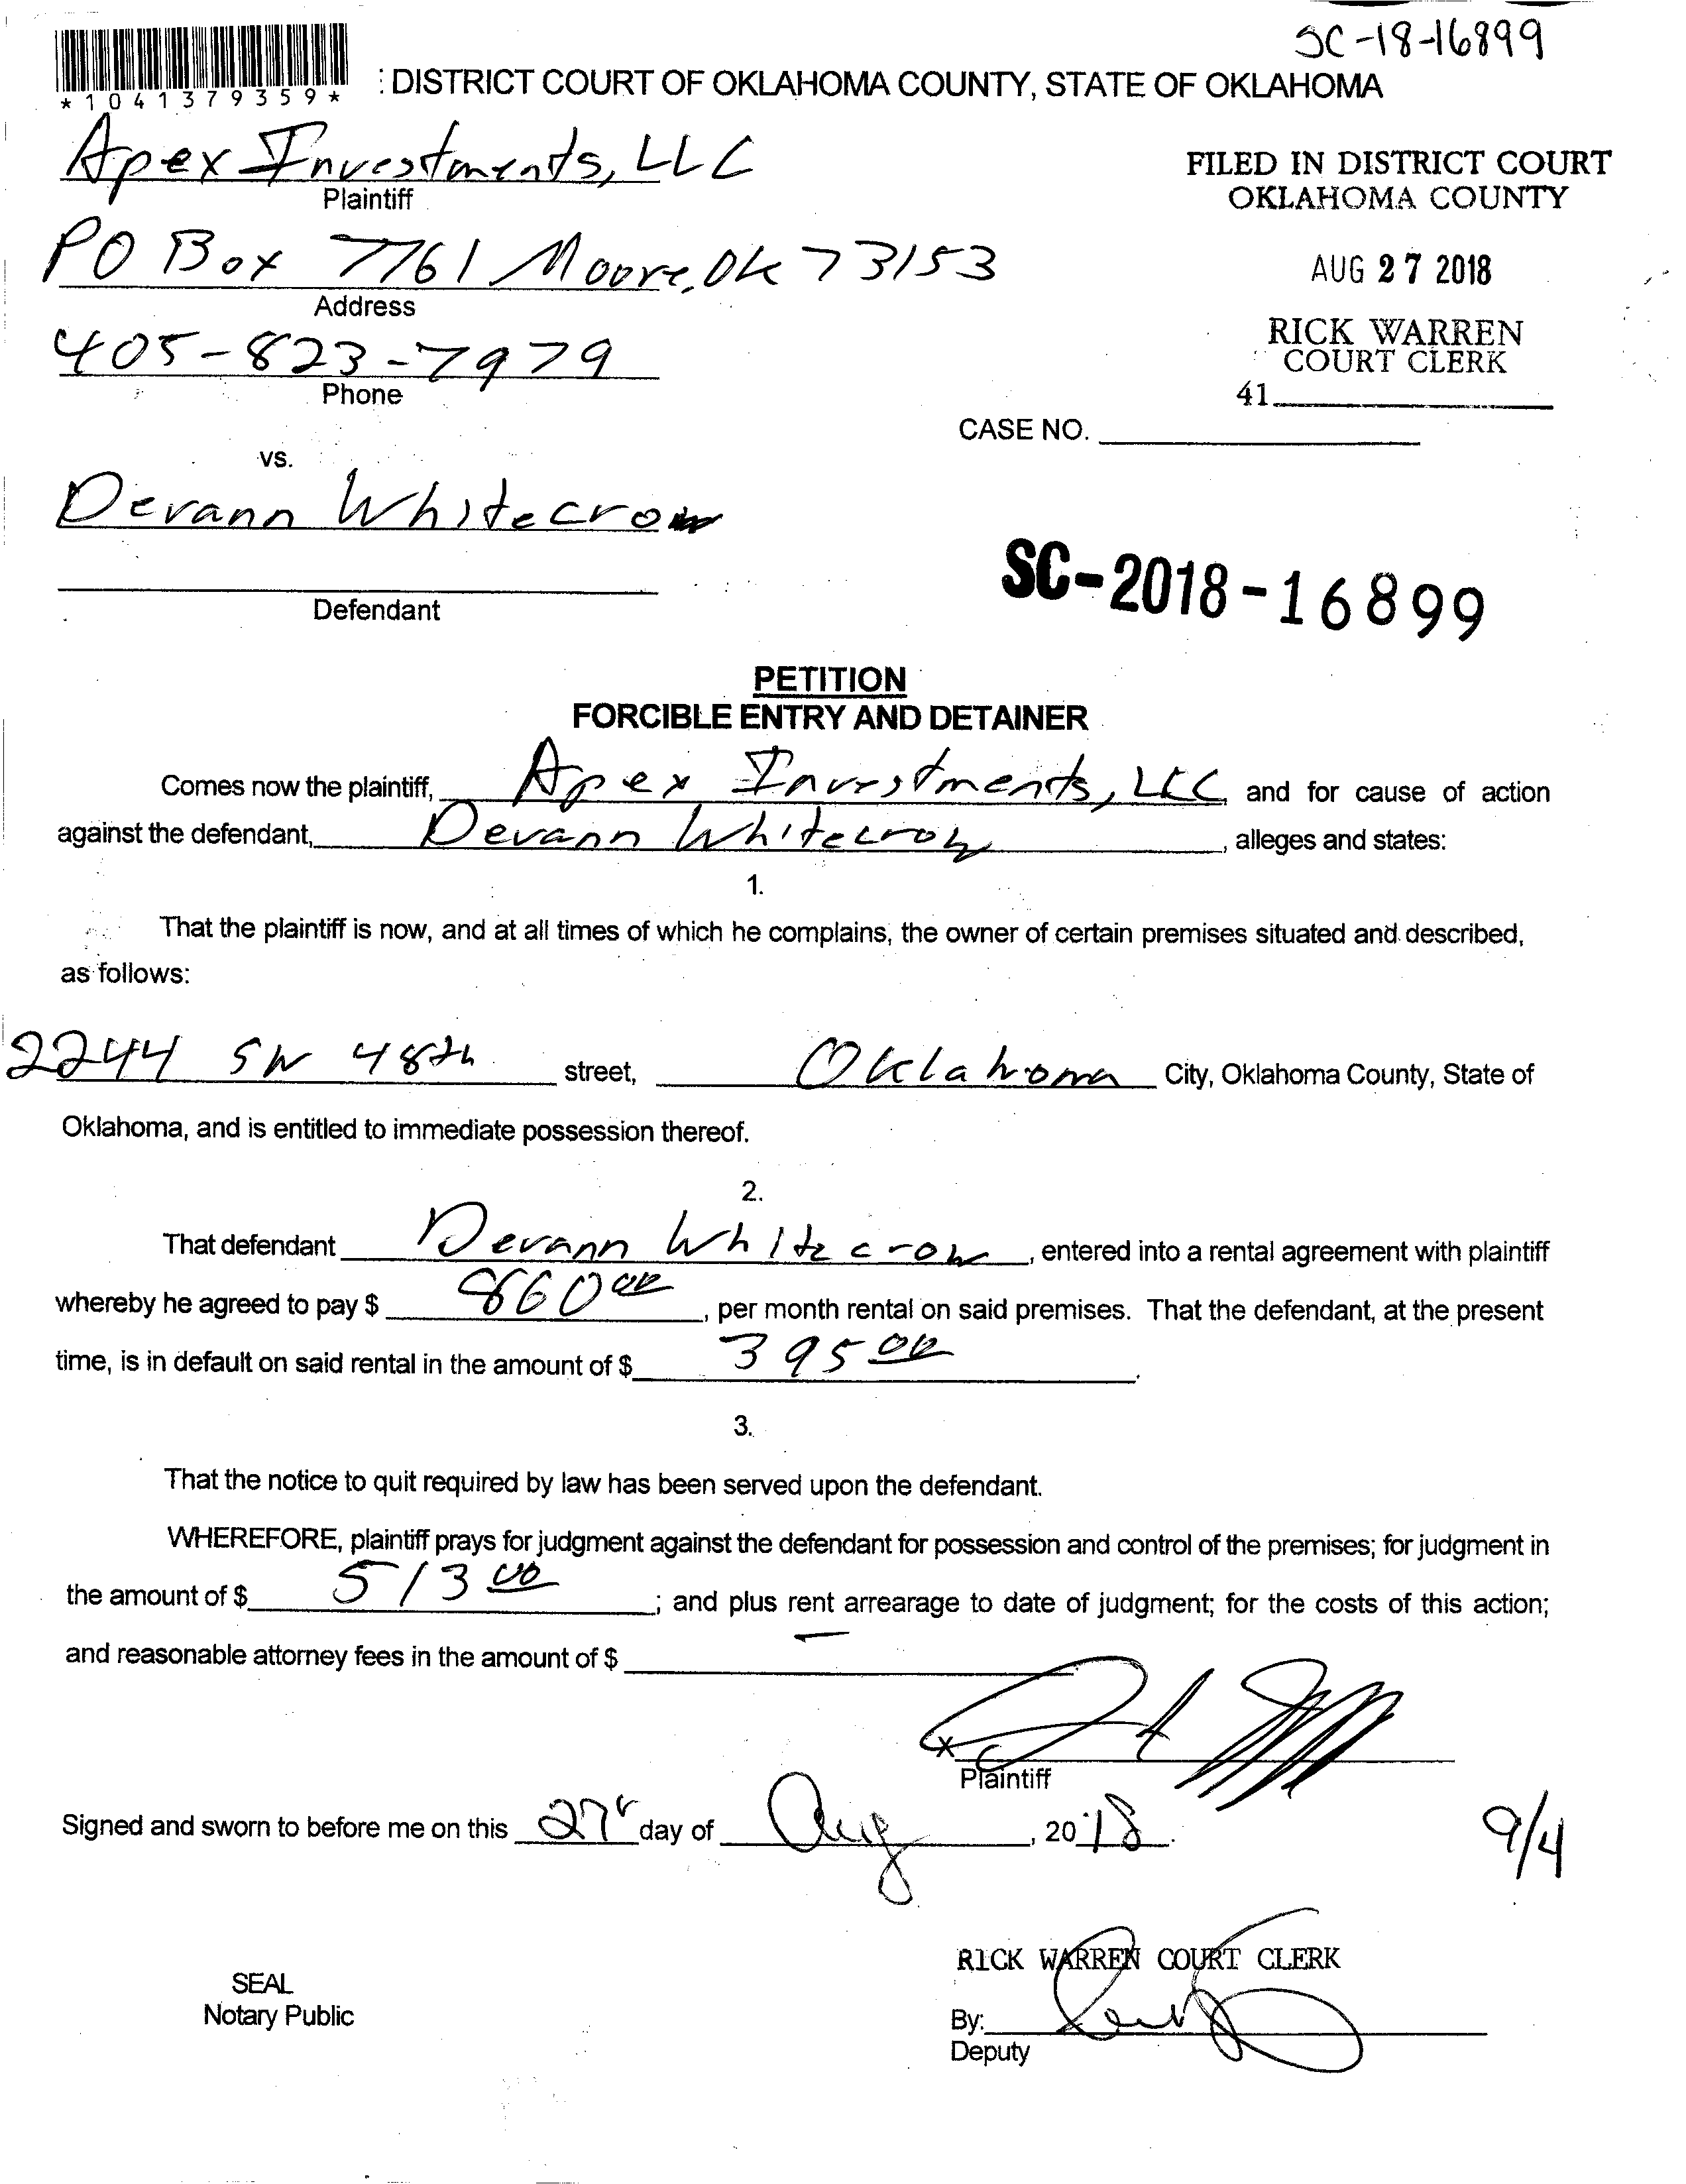 SC-18-16899
*1041379359*
: DISTRICT COURT OF OKLAHOMA COUNTY, STATE OF OKLAHOMA
Apex Investments, LLC
Plaintiff
FILED IN DISTRICT COURT
OKLAHOMA COUNTY
PO Box 7761 Moore, OK 73153
Address
AUG 27 2018
405-823-7979
Phone
RICK WARREN
COURT CLERK
41
CASE NO.
vs.
Devann Whitecrow
Defendant
SC-2018-16899
PETITION
FORCIBLE ENTRY AND DETAINER
Comes now the plaintiff, Apex Investments, LLC, and for cause of action
against the defendant, Devann Whitecrow, alleges and states:
1.
That the plaintiff is now, and at all times of which he complains, the owner of certain premises situated and described,
as follows:
2244 SW 48th street, Oklahoma City, Oklahoma County, State of
Oklahoma, and is entitled to immediate possession thereof.
2.
That defendant Devann Whitecrow, entered into a rental agreement with plaintiff
whereby he agreed to pay $ 860 00, per month rental on said premises. That the defendant, at the present
time, is in default on said rental in the amount of $ 395 00.
3.
That the notice to quit required by law has been served upon the defendant.
WHEREFORE, plaintiff prays for judgment against the defendant for possession and control of the premises; for judgment in
the amount of $ 513 00; and plus rent arrearage to date of judgment; for the costs of this action;
and reasonable attorney fees in the amount of $
x
Plaintiff
Signed and sworn to before me on this 27 day of Aug, 2018.
9/4
RICK WARREN COURT CLERK
SEAL
Notary Public
By:
Deputy